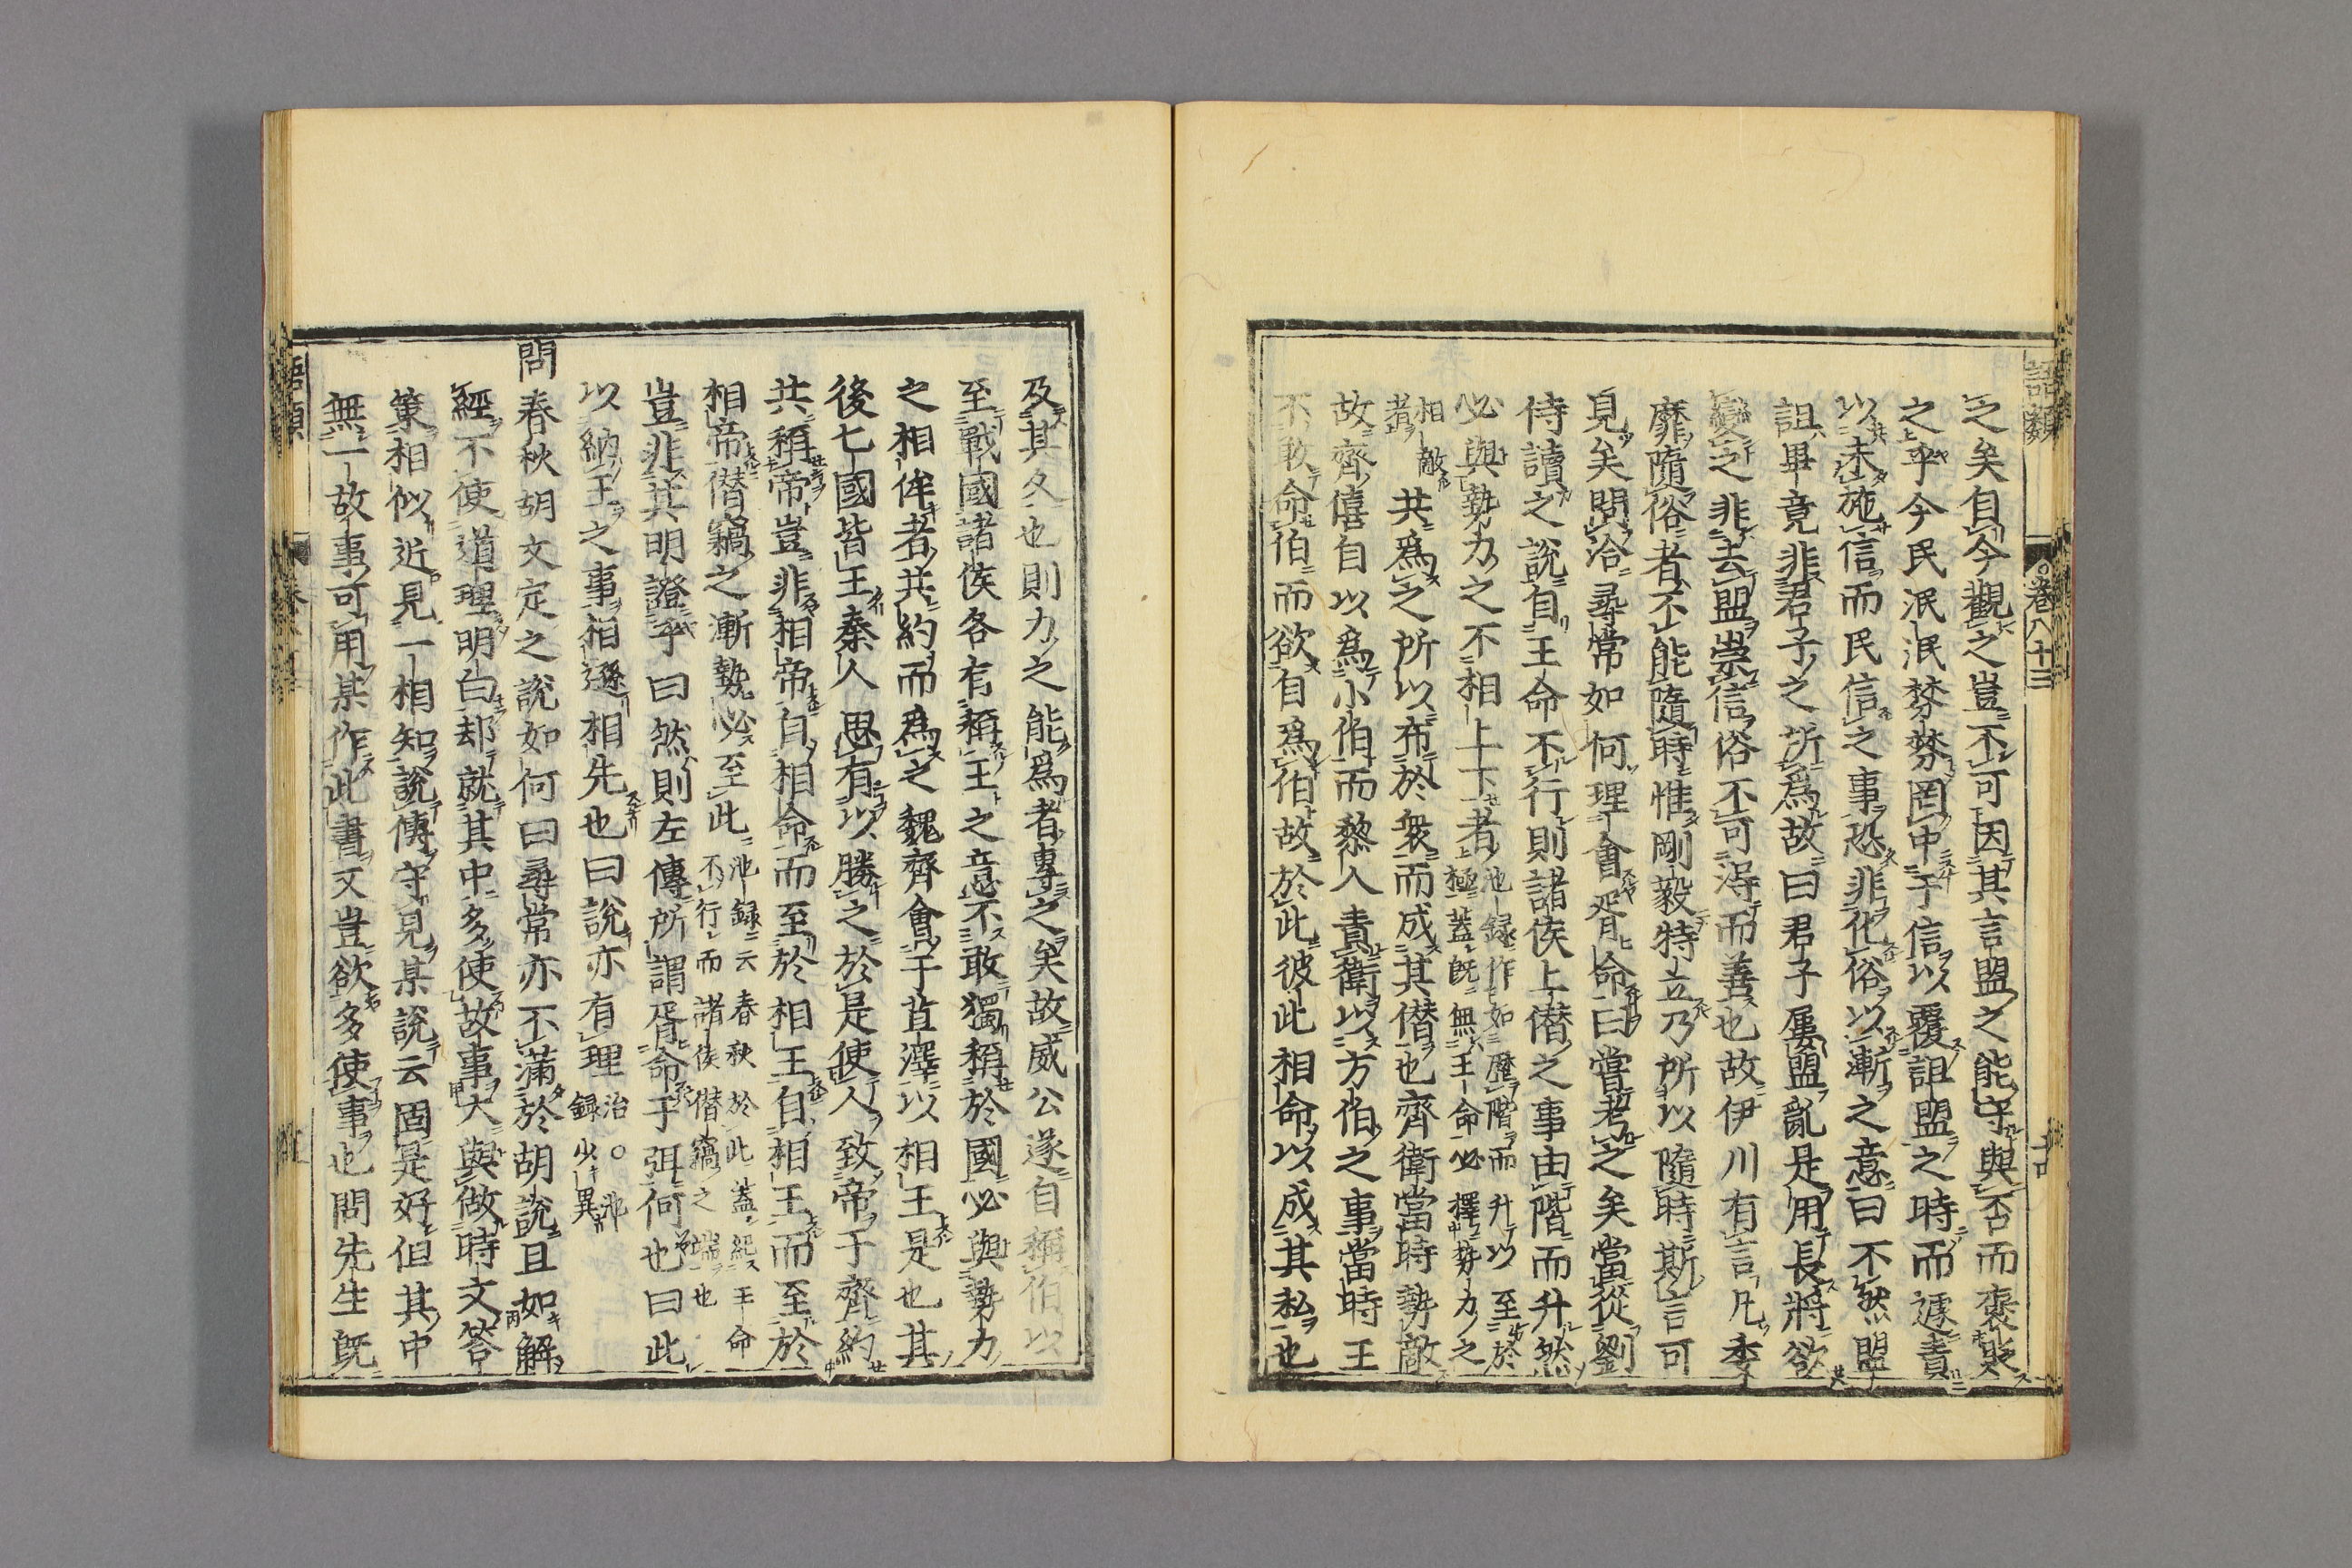 語類 卷八十三
之矣自今觀之豈不可因其言盟之能守與否而褒貶
之乎今民泯泯棼棼罔中于信以覆詛盟之時而遽責
以未施信而民信之事恐非化俗以漸之意曰不然盟
詛畢竟非君子之所爲故曰君子屢盟亂是用長將欲
變之非去盟崇信俗不可得而善也故伊川有言凡委
靡隨俗者不能隨時惟剛毅特立乃所以隨時斯言可
見矣問洽尋常如何理會胥命曰嘗考之矣當從劉
侍讀之説自王命不行則諸侯上僭之事由階而升然
必與勢力之不相上下者池録作如歷階而升以至於
極蓋既無王命必擇勢力之
相敵者共爲之所以布於衆而成其僭也齊衛當時勢敵
故齊僖自以爲小伯而黎人責衛以方伯之事當時王
不敢命伯而欲自爲伯故於此彼此相命以成其私也
及其久也則力之能爲者專之矣故威公遂自稱伯以
至戰國諸侯各有稱王之意不敢獨稱於國必與勢力
之相侔者共約而爲之魏齊會于苴澤以相王是也其
後七國皆王秦人思有以勝之於是使人致帝于齊約
共稱帝豈非相帝自相命而至於相王自相王而至於
相帝僭竊之漸勢必至此池録云春秋於此蓋紀王命
不行而諸侯僭竊之端也
豈非其明證乎曰然則左傳所謂胥命于弭何也曰此
以納王之事相遜相先也曰説亦有理洽○池
録少異
問春秋胡文定之説如何曰尋常亦不滿於胡説且如解
經不使道理明白却就其中多使故事大與做時文答
策相似近見一相知説傳守見某説云固是好但其中
無一故事可用某作此書又豈欲多使事也問先生既